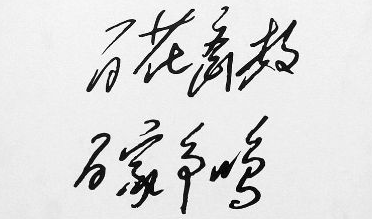 百花齐放
百家争鸣